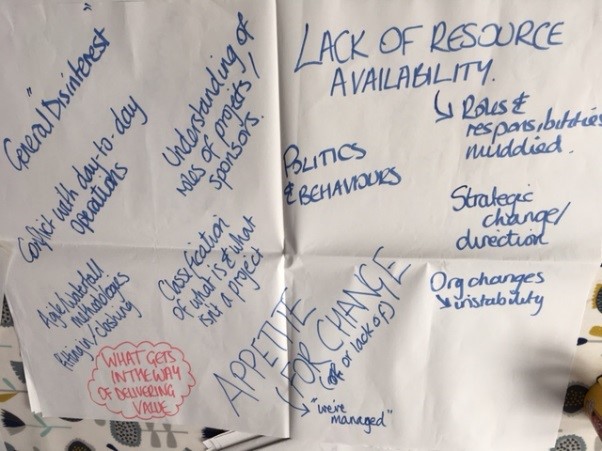 "General Disinterest"
Conflict with day-to-day
operations
Understanding of
roles of projects /
sponsors.
LACK OF RESOURCE
AVAILABILITY.
↳ Roles &
responsibilities
muddied.
POLITICS
& BEHAVIOURS
Strategic
change/
direction
Org changes
↳ instability
Classification
of what is & what
isn't a project
Agile/waterfall
methodologies
fitting in/clashing
WHAT GETS
IN THE WAY
OF DELIVERING
VALUE
APPETITE
FOR CHANGE
(or lack of)
↳ "we're
managed"